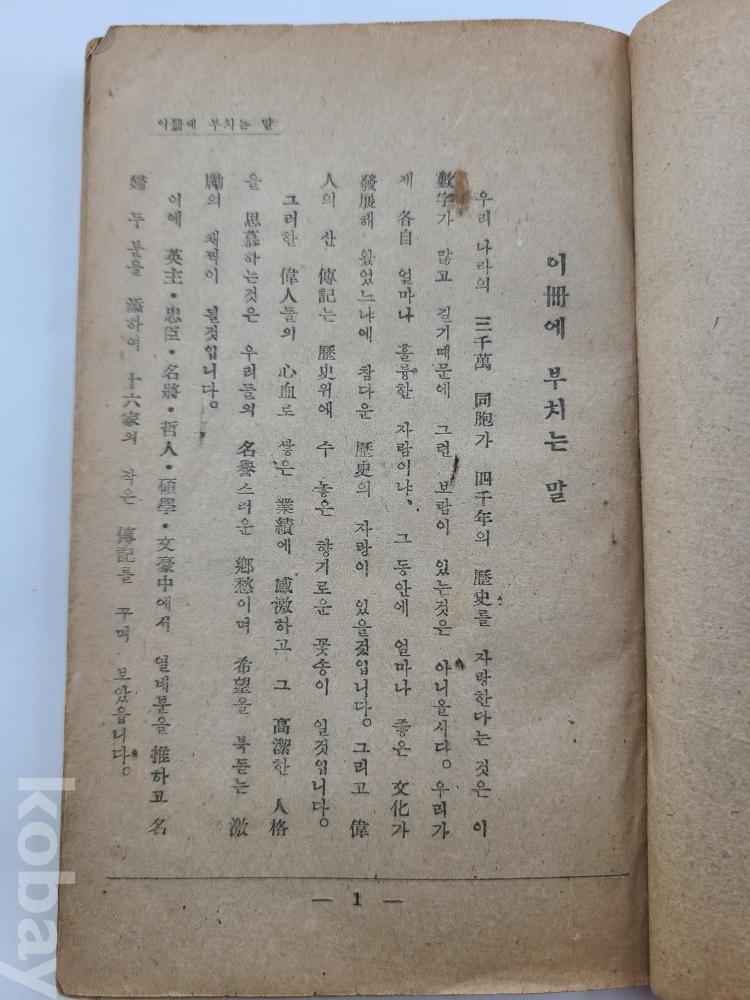 이冊에 부치는 말
이冊에 부치는 말
우리 나라의 三千萬 同胞가 四千年의 歷史를 자랑한다는 것은 이
數字가 많고 길기때문에 그런 보람이 있는것은 아니올시다. 우리가
제 各自 얼마나 훌륭한 자람이냐. 그 동안에 얼마나 좋은 文化가
發展해 왔었느냐에 참다운 歷史의 자랑이 있을것입니다. 그리고 偉
人의 산 傳記는 歷史위에 수 놓은 향기로운 꽃송이 일것입니다.
그러한 偉人들의 心血로 쌓은 業績에 感激하고 그 高潔한 人格
을 思慕하는것은 우리들의 名譽스러운 鄕愁이며 希望을 북돋는 激
勵의 채찍이 될것입니다.
이에 英主・忠臣・名將・哲人・碩學・文豪中에서 열네분을 推하고 名
婦 두분을 添하여 十六家의 작은 傳記를 꾸며 모았읍니다.
— 1 —
kobay